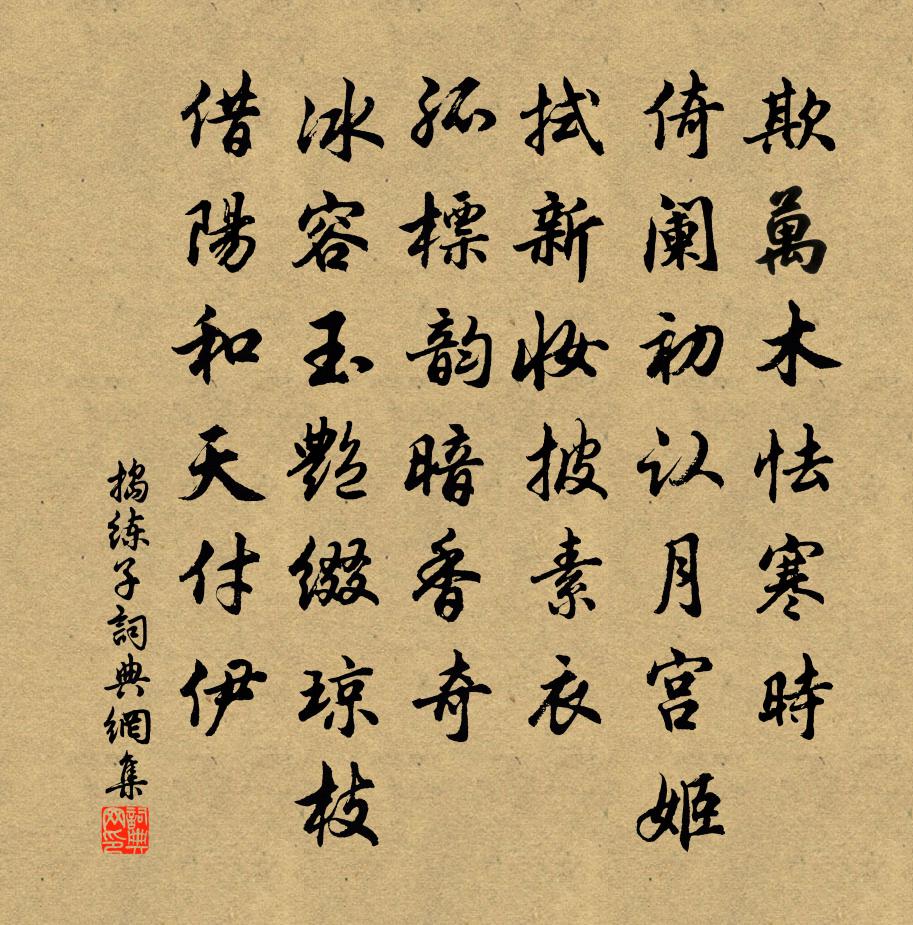 欺萬木怯寒時
倚阑初认月宫姬
拭新妝披素衣
孤標韵暗香奇
冰容玉艷綴琼枝
借陽和天付伊
搗练子詞典網集
詞典网印